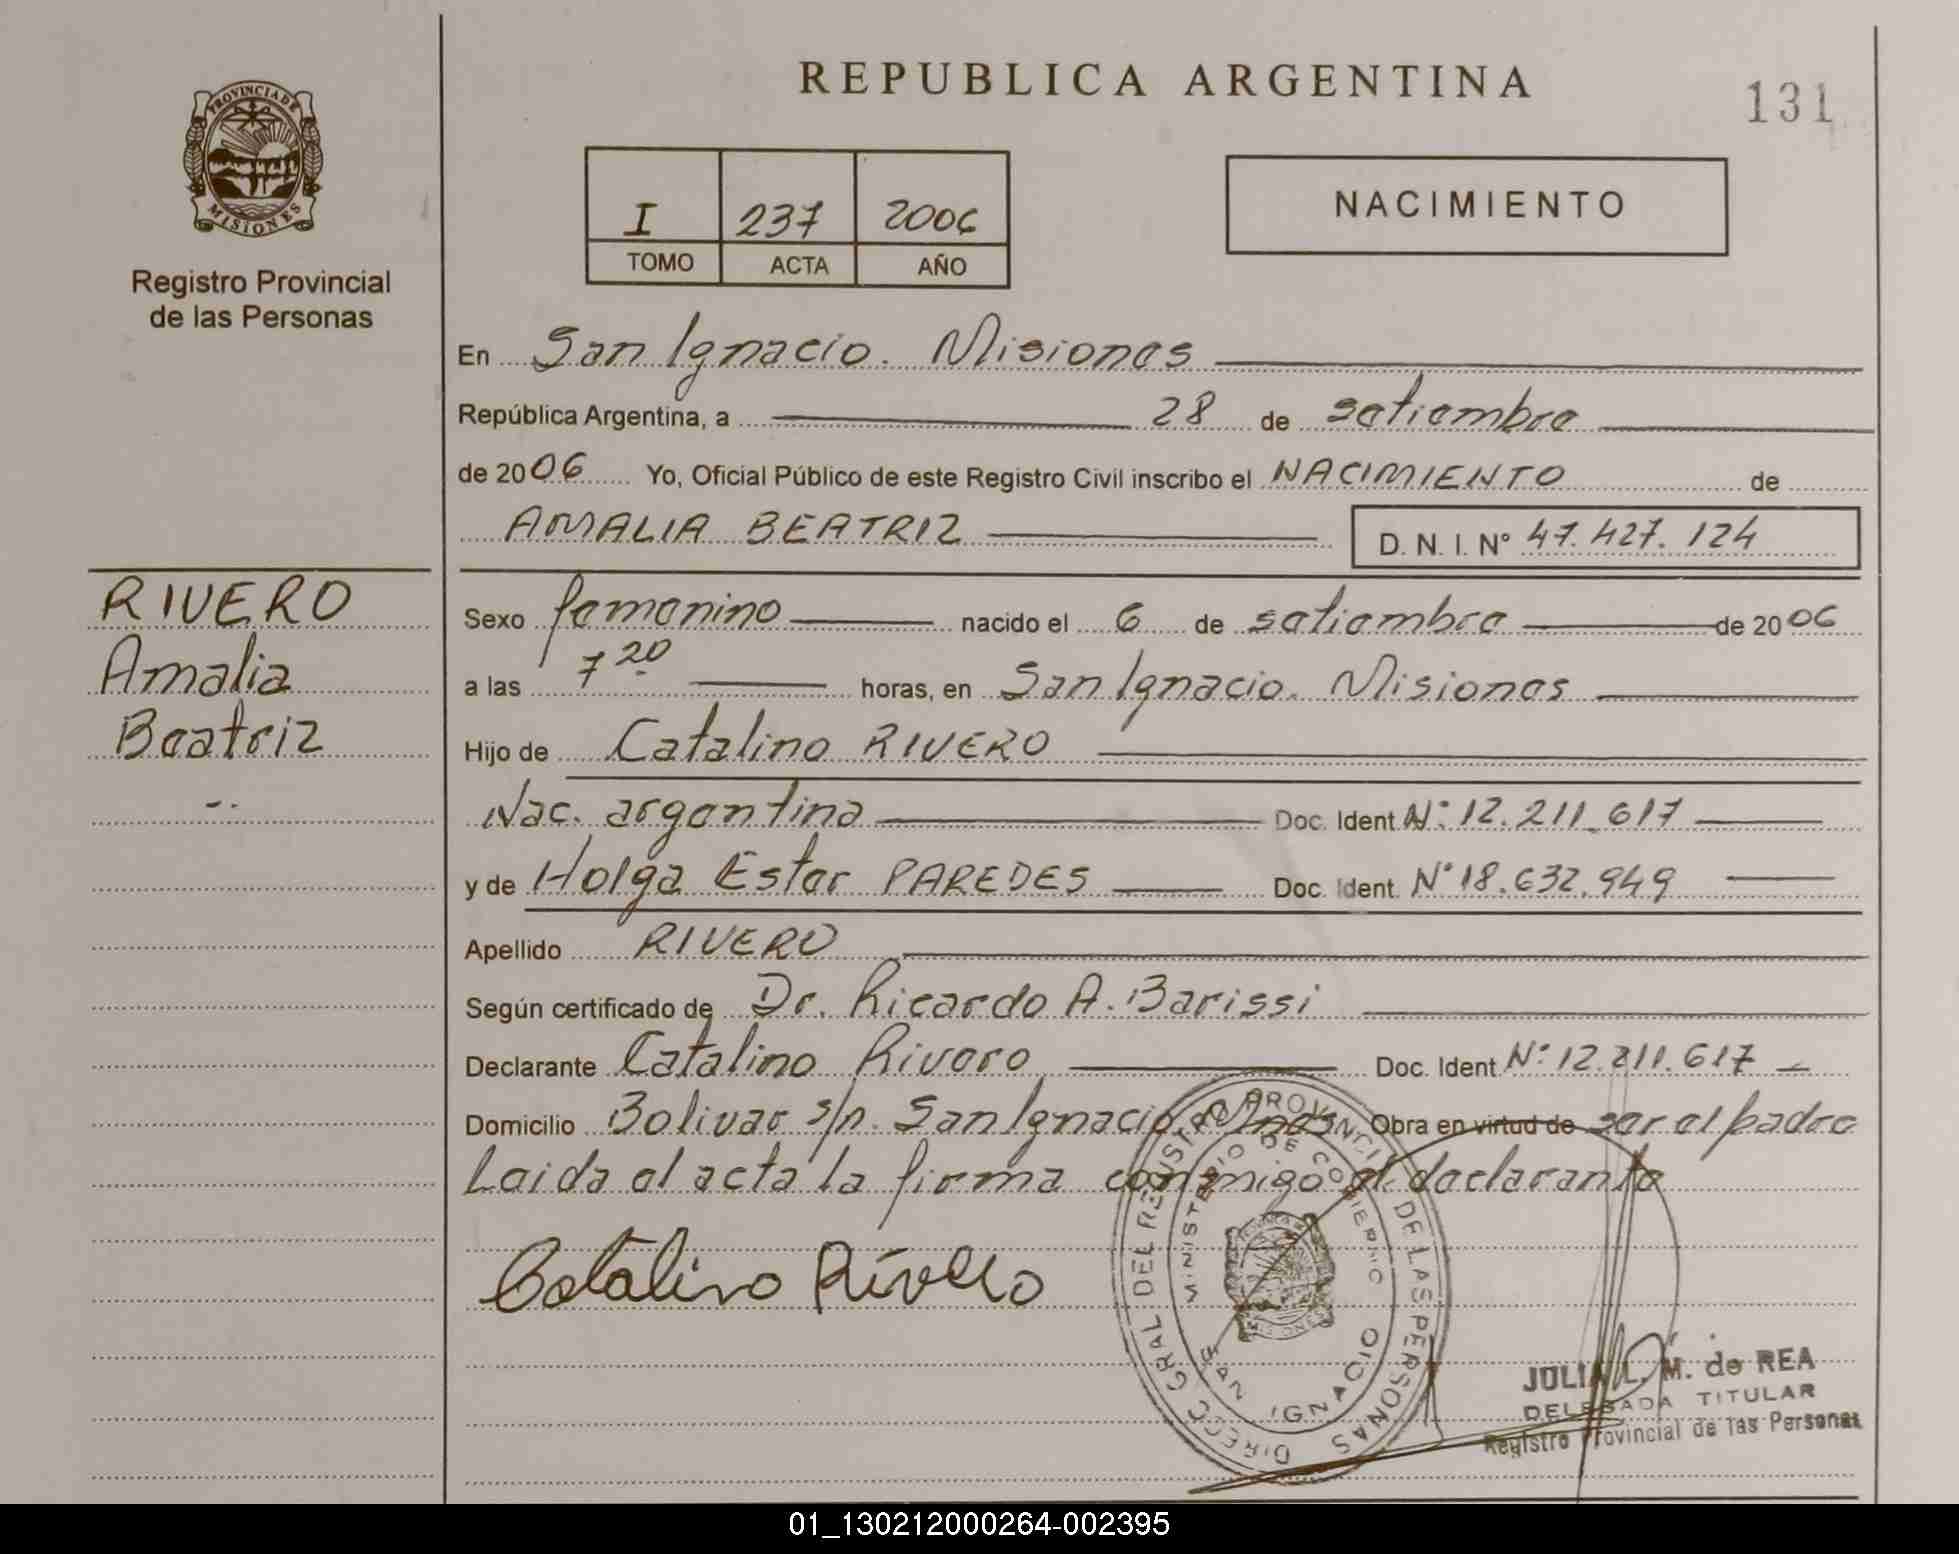 REPUBLICA ARGENTINA
131
PROVINCIA DE
MISIONES
Registro Provincial
de las Personas
I 237 2006
TOMO ACTA AÑO
NACIMIENTO
En San Ignacio. Misiones
República Argentina, a 28 de setiembre
de 2006 Yo, Oficial Público de este Registro Civil inscribo el NACIMIENTO de
AMALIA BEATRIZ D. N. I. N° 47.427.124
RIVERO
Amalia
Beatriz
Sexo femenino nacido el 6 de setiembre de 2006
a las 7 20 horas, en San Ignacio. Misiones
Hijo de Catalino RIVERO
Nac. argentina Doc. Ident N° 12.211.617
y de Holga Ester PAREDES Doc. Ident. N° 18.632.949
Apellido RIVERO
Según certificado de Dr. Ricardo A. Barissi
Declarante Catalino Rivero Doc. Ident N° 12.211.617
Domicilio Bolivar s/n. San Ignacio. Mnes Obra en virtud de ser el padre
Leida el acta la firma conmigo el declarante
Catalino Rivero
DIRECC GRAL DEL REGISTRO PROVINCIAL DE LAS PERSONAS
MINISTERIO DE GOBIERNO
SAN IGNACIO
JULIA L. M. de REA
DELEGADA TITULAR
Registro Provincial de las Personas
01_130212000264-002395